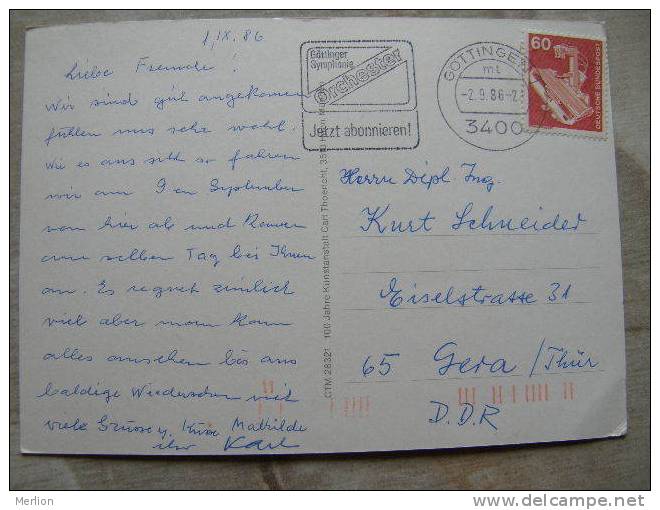 1,IX.86
Liebe Freunde!
Wir sind gut angekommen
fühlen uns sehr wohl.
Wie es aus sieht so fahren
wir am 9 en September
von hier ab und kommen
am selben Tag bei Ihnen
an. Es regnet ziemlich
viel aber man kann
alles ansehen bis ans
baldige Wiedersehen mit
viele Grüsse u. Küsse Mathilde
Karl
CTM 28321 100 Jahre Kunstanstalt Carl Thoericht, 35
Göttinger
Symphonie
orchester
Jetzt abonnieren!
GÖTTINGEN
mt
-2.9.86-2
3400
60
DEUTSCHE BUNDESPOST
Herrn Dipl. Ing.
Kurt Schneider
Eiselstrasse 31
65 Gera /Thür
D.D.R
Merlion
www.delcampe.net